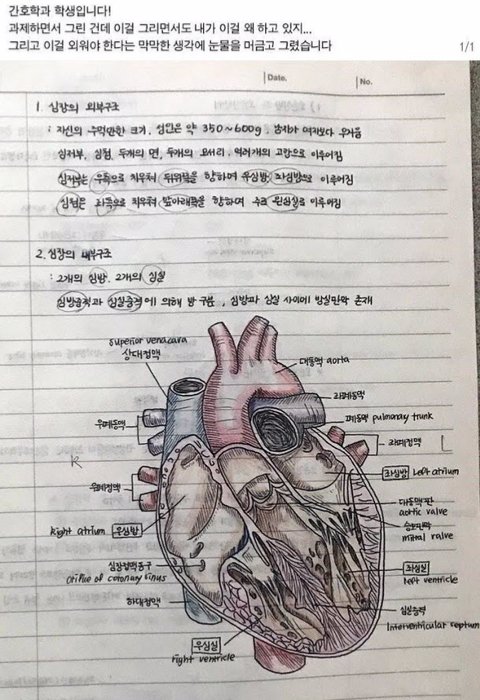 간호학과 학생입니다!
과제하면서 그린 건데 이걸 그리면서도 내가 이걸 왜 하고 있지...
그리고 이걸 외워야 한다는 막막한 생각에 눈물을 머금고 그렸습니다
1/1
Date.
No.
1. 심장의 외부구조
: 자신의 주먹만한 크기, 성인은 약 350~600g, 남자가 여자보다 무거움
심저부, 심첨, 두개의 면, 두개의 모서리, 여러개의 고랑으로 이루어짐
심저부는 우측으로 치우쳐 뒤위쪽을 향하며 우심방, 좌심방으로 이루어짐
심첨은 좌측으로 치우쳐 앞아래쪽을 향하며 주로 좌심실로 이루어짐
2. 심장의 내부구조
: 2개의 심방, 2개의 심실
심방중격과 심실중격에 의해 방 구분, 심방과 심실 사이에 방실판막 존재
superior venacava
상대정맥
대동맥 aorta
좌폐동맥
우폐동맥
폐동맥 pulmonary trunk
좌폐정맥
R
L
우폐정맥
좌심방 left atrium
대동맥판
aortic valve
승모판막
mitral valve
Right atrium 우심방
심장정맥동구
orifice of coronary sinus
좌심실
left ventricle
하대정맥
심실중격
Interventricular septum
우심실
right ventricle